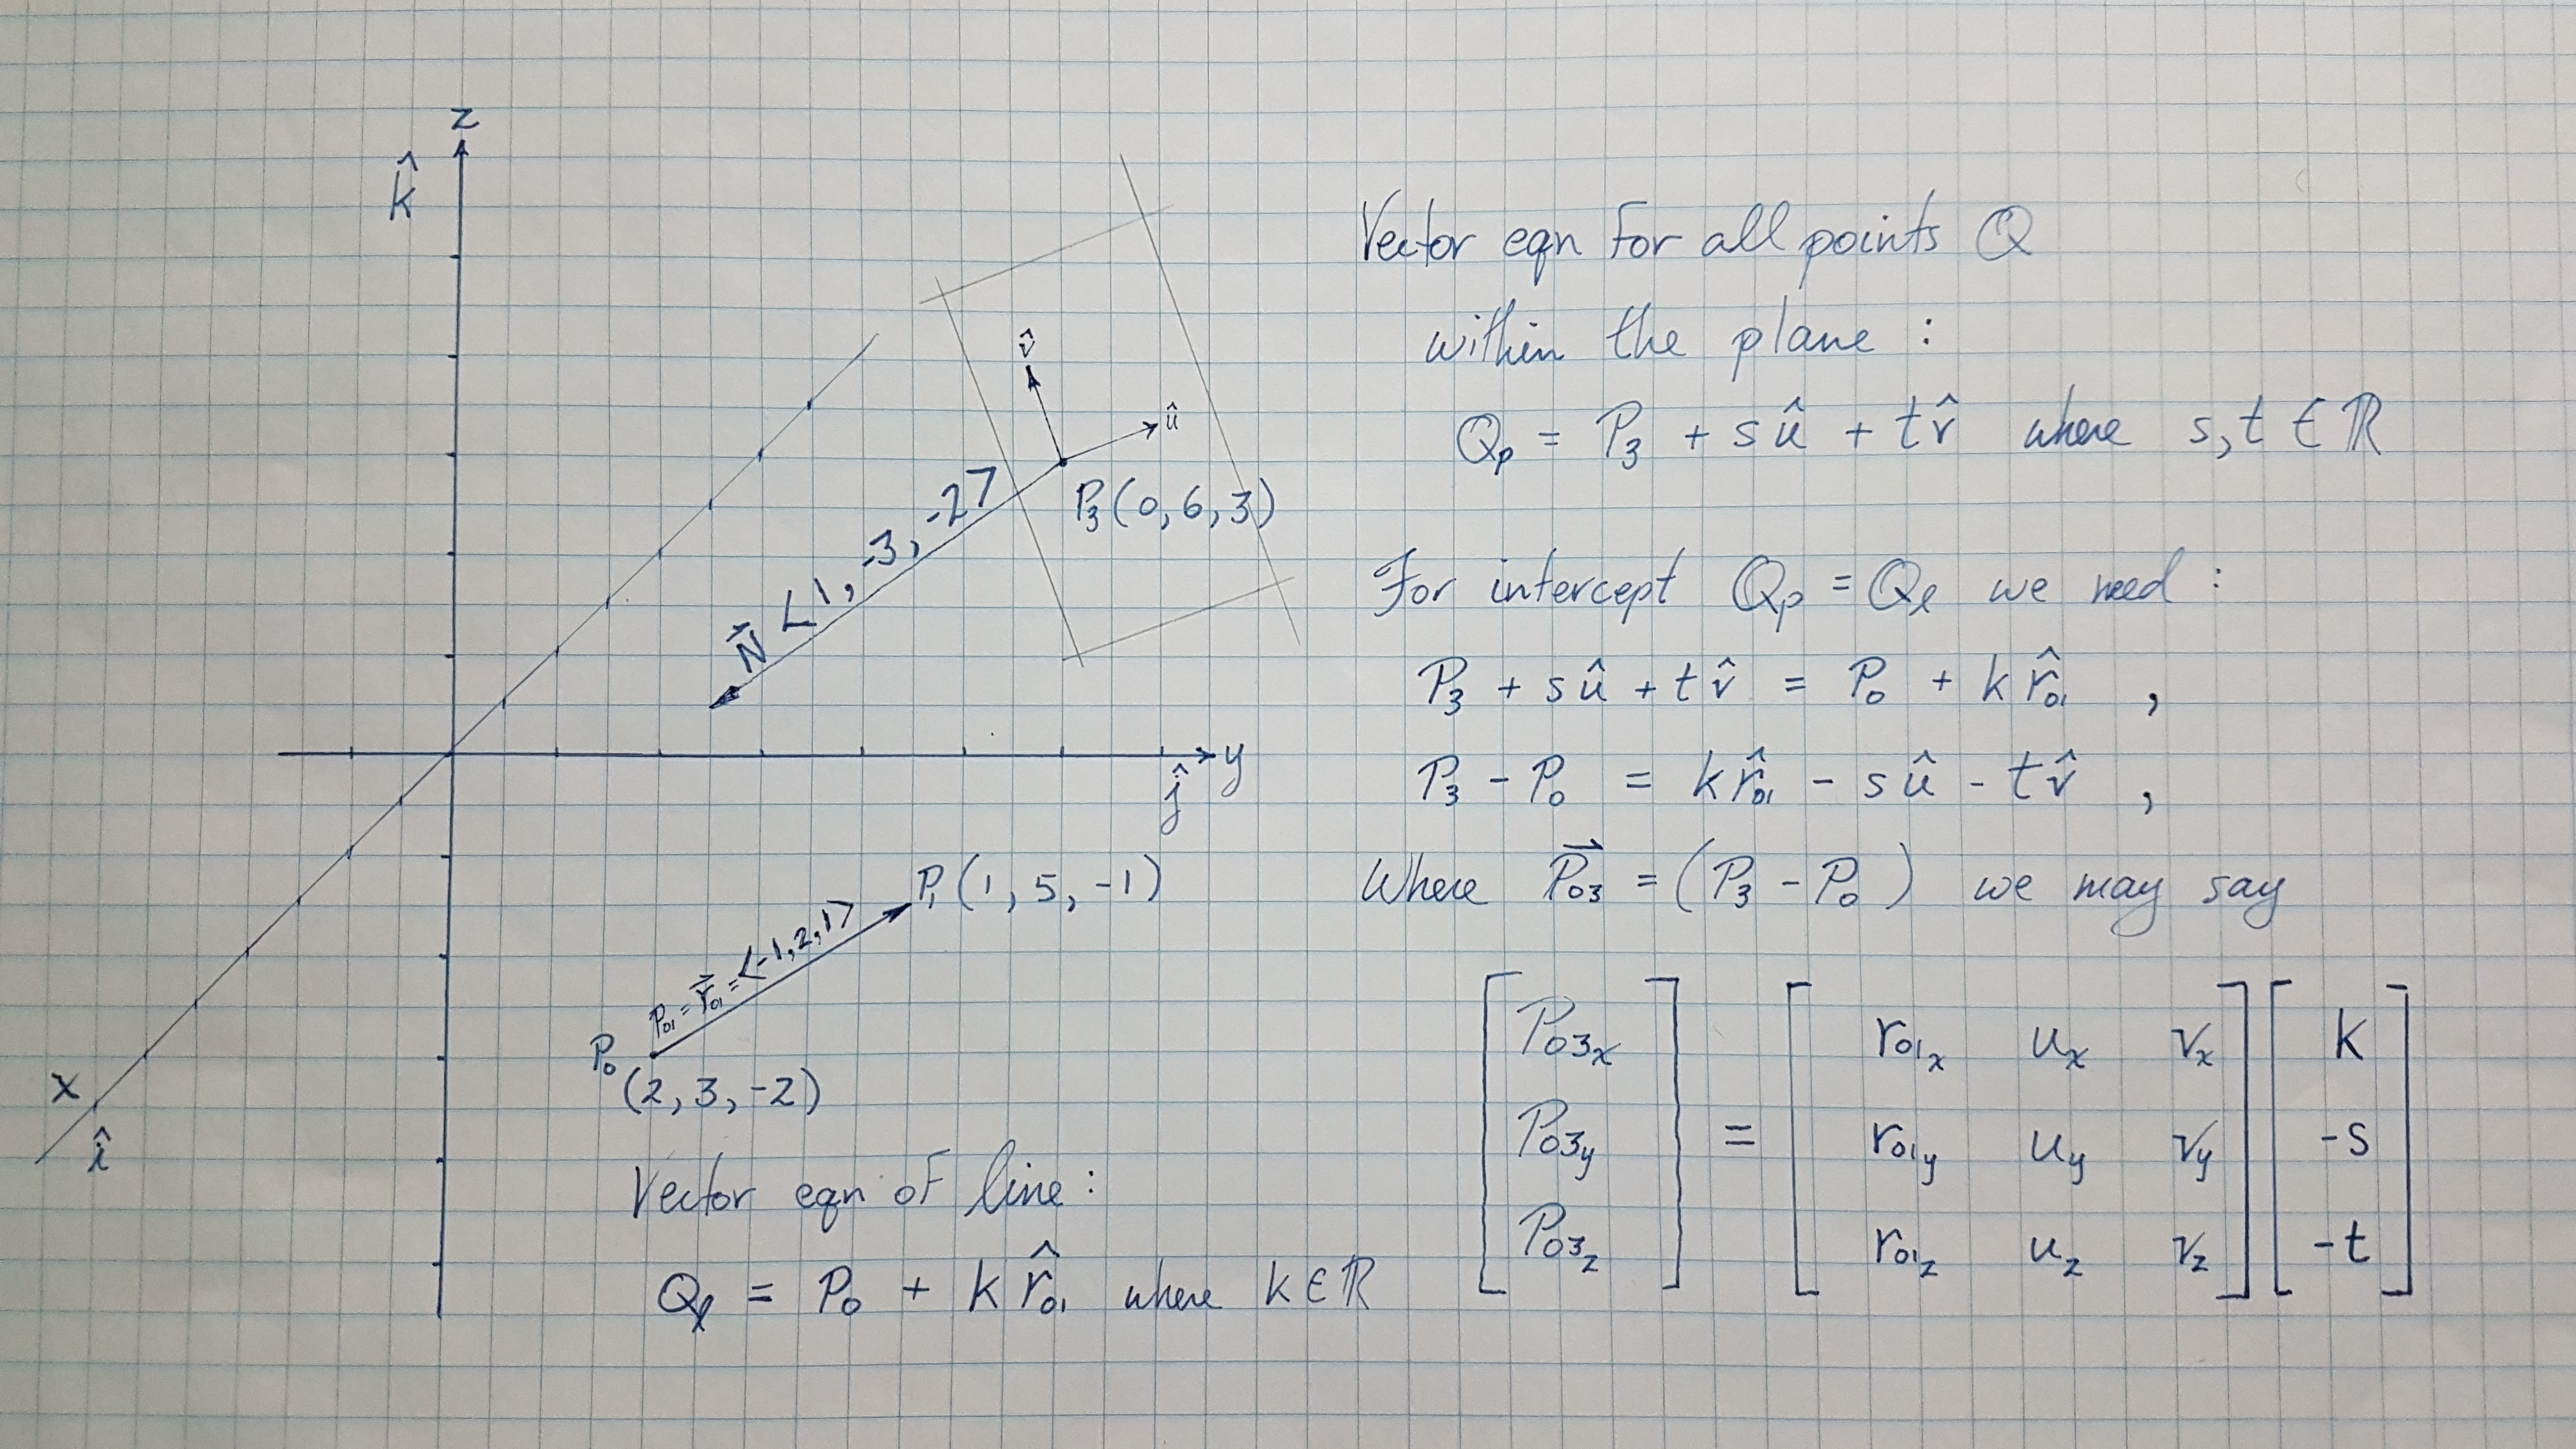 z
k̂
v̂
û
P₃(0, 6, 3)
N⃗ <1, -3, -2>
y
ĵ
P₁(1, 5, -1)
P₀₁ = r⃗₀₁ = <-1, 2, 1>
P₀
(2, 3, -2)
x
î
Vector eqn of line :
Qₗ = P₀ + k r̂₀₁ where k ∈ ℝ
Vector eqn for all points Q
within the plane :
Qₚ = P₃ + sû + tv̂ where s, t ∈ ℝ
For intercept Qₚ = Qₗ we need :
P₃ + sû + tv̂ = P₀ + k r̂₀₁ ,
P₃ - P₀ = k r̂₀₁ - sû - tv̂ ,
Where P⃗₀₃ = (P₃ - P₀) we may say
[P₀₃ₓ] [r₀₁ₓ uₓ vₓ] [k]
[P₀₃y] = [r₀₁y uy vy] [-s]
[P₀₃z] [r₀₁z uz vz] [-t]